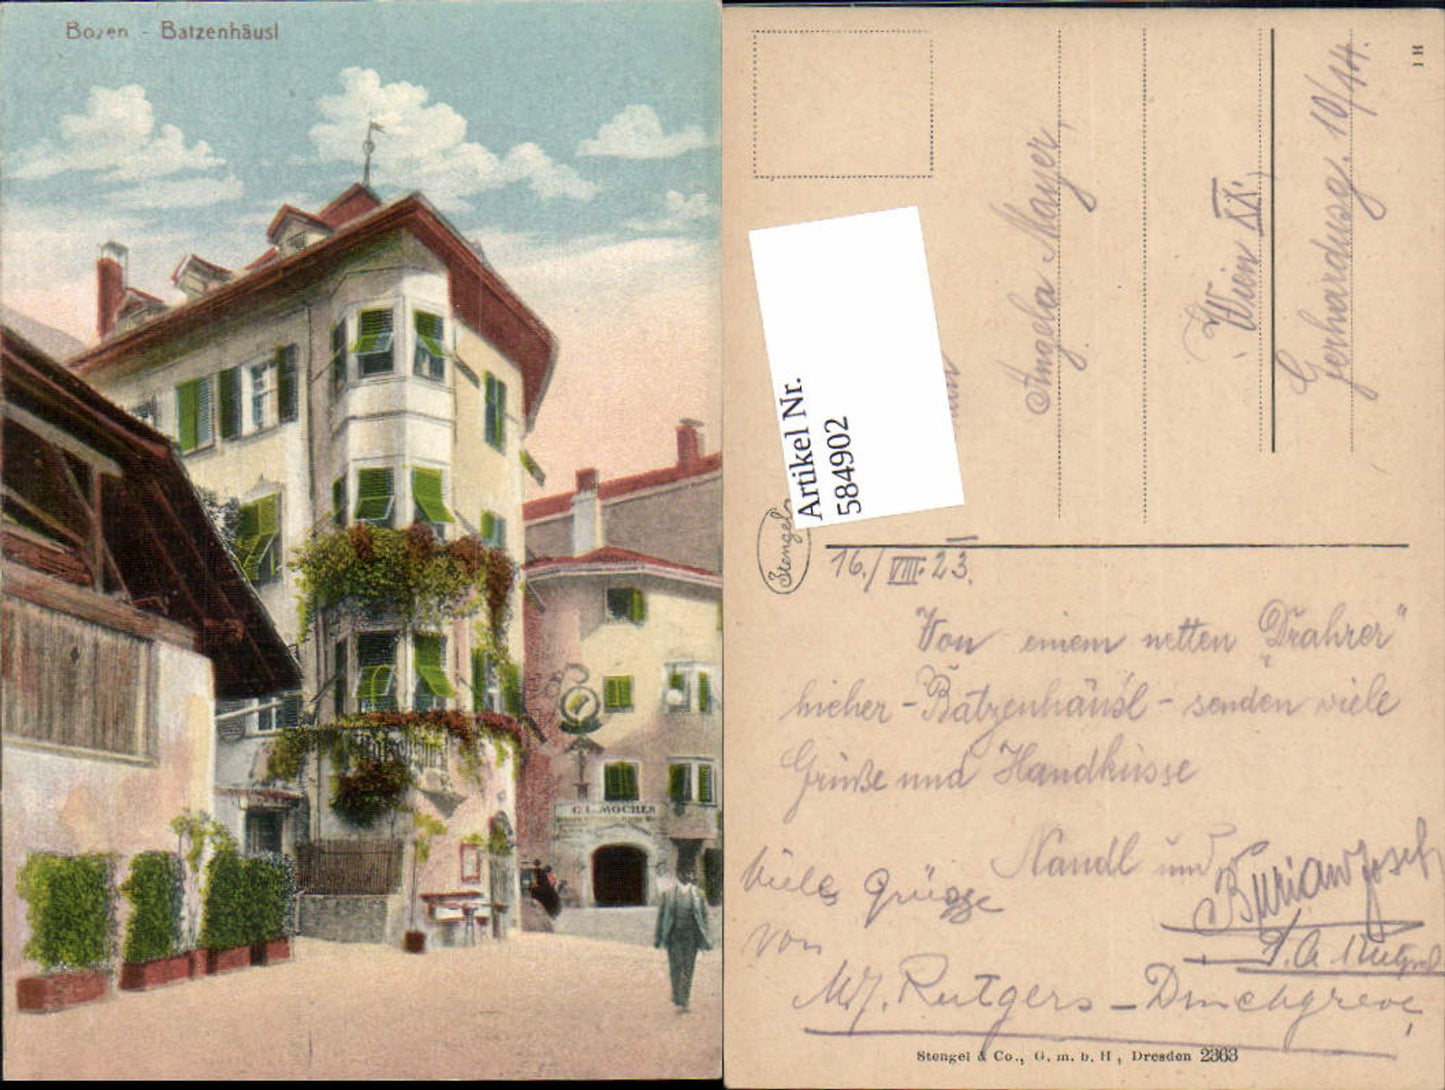 Bozen - Batzenhäusl
C. L. MOCHEN
1 H
Angela Mayer,
Wien XX.,
Gerhardusg. 10/14.
Artikel Nr.
584902
Stengel
16./VIII. 23.
Von einem netten „Drahrer"
hieher - Batzenhäusl - senden viele
Grüße und Handküsse
Nandl und
Burian Josef
Viele Grüsse
von
Rutgers -
Stengel & Co., G. m. b. H., Dresden 2363